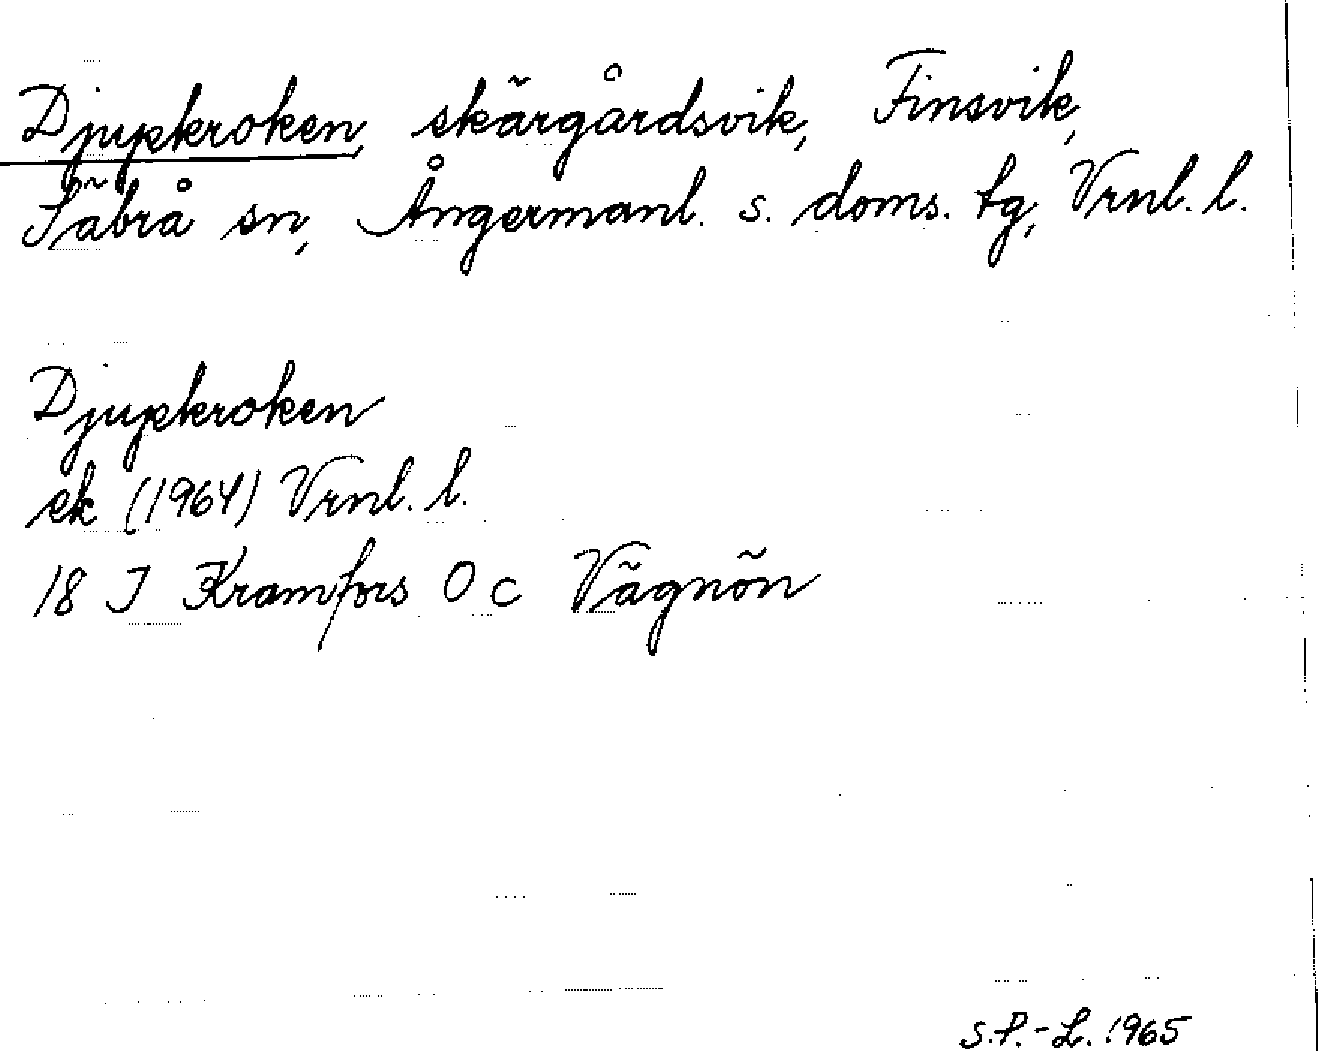 Djupkroken, skärgårdsvik, Finsvik,
Säbrå sn, Ångermanl. s. doms. tg, Vrnl. l.
Djupkroken
ek (1964) Vrnl. l.
18 I Kramfors 0 c Vägnön
S.P.-L. 1965